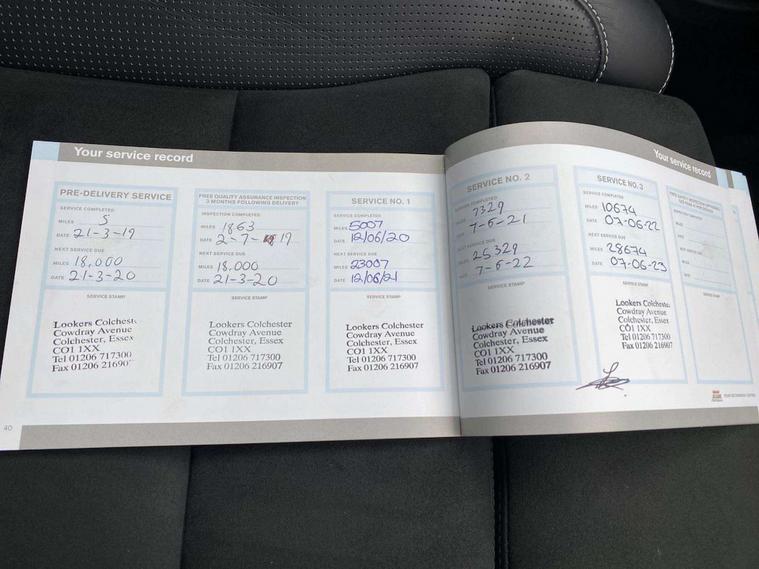 Your service record
PRE-DELIVERY SERVICE
SERVICE COMPLETED:
MILES 5
DATE 21-3-19
NEXT SERVICE DUE
MILES 18,000
DATE 21-3-20
SERVICE STAMP
Lookers Colchester
Cowdray Avenue
Colchester, Essex
CO1 1XX
Tel 01206 717300
Fax 01206 216907
FREE QUALITY ASSURANCE INSPECTION
3 MONTHS FOLLOWING DELIVERY
INSPECTION COMPLETED:
MILES 1863
DATE 2-7-19
NEXT SERVICE DUE
MILES 18,000
DATE 21-3-20
SERVICE STAMP
Lookers Colchester
Cowdray Avenue
Colchester, Essex
CO1 1XX
Tel 01206 717300
Fax 01206 216907
SERVICE NO. 1
SERVICE COMPLETED:
MILES 5007
DATE 12/06/20
NEXT SERVICE DUE
MILES 23007
DATE 12/06/21
SERVICE STAMP
Lookers Colchester
Cowdray Avenue
Colchester, Essex
CO1 1XX
Tel 01206 717300
Fax 01206 216907
40
Your service record
SERVICE NO. 2
SERVICE COMPLETED:
MILES 7329
DATE 7-6-21
NEXT SERVICE DUE
MILES 25,329
DATE 7-6-22
SERVICE STAMP
Lookers Colchester
Cowdray Avenue
Colchester, Essex
CO1 1XX
Tel 01206 717300
Fax 01206 216907
SERVICE NO. 3
SERVICE COMPLETED:
MILES 10674
DATE 07-06-22
NEXT SERVICE DUE
MILES 28674
DATE 07-06-23
SERVICE STAMP
Lookers Colchester
Cowdray Avenue
Colchester, Essex
CO1 1XX
Tel 01206 717300
Fax 01206 216907
NEXT SERVICE DUE
MILES
DATE
SERVICE STAMP